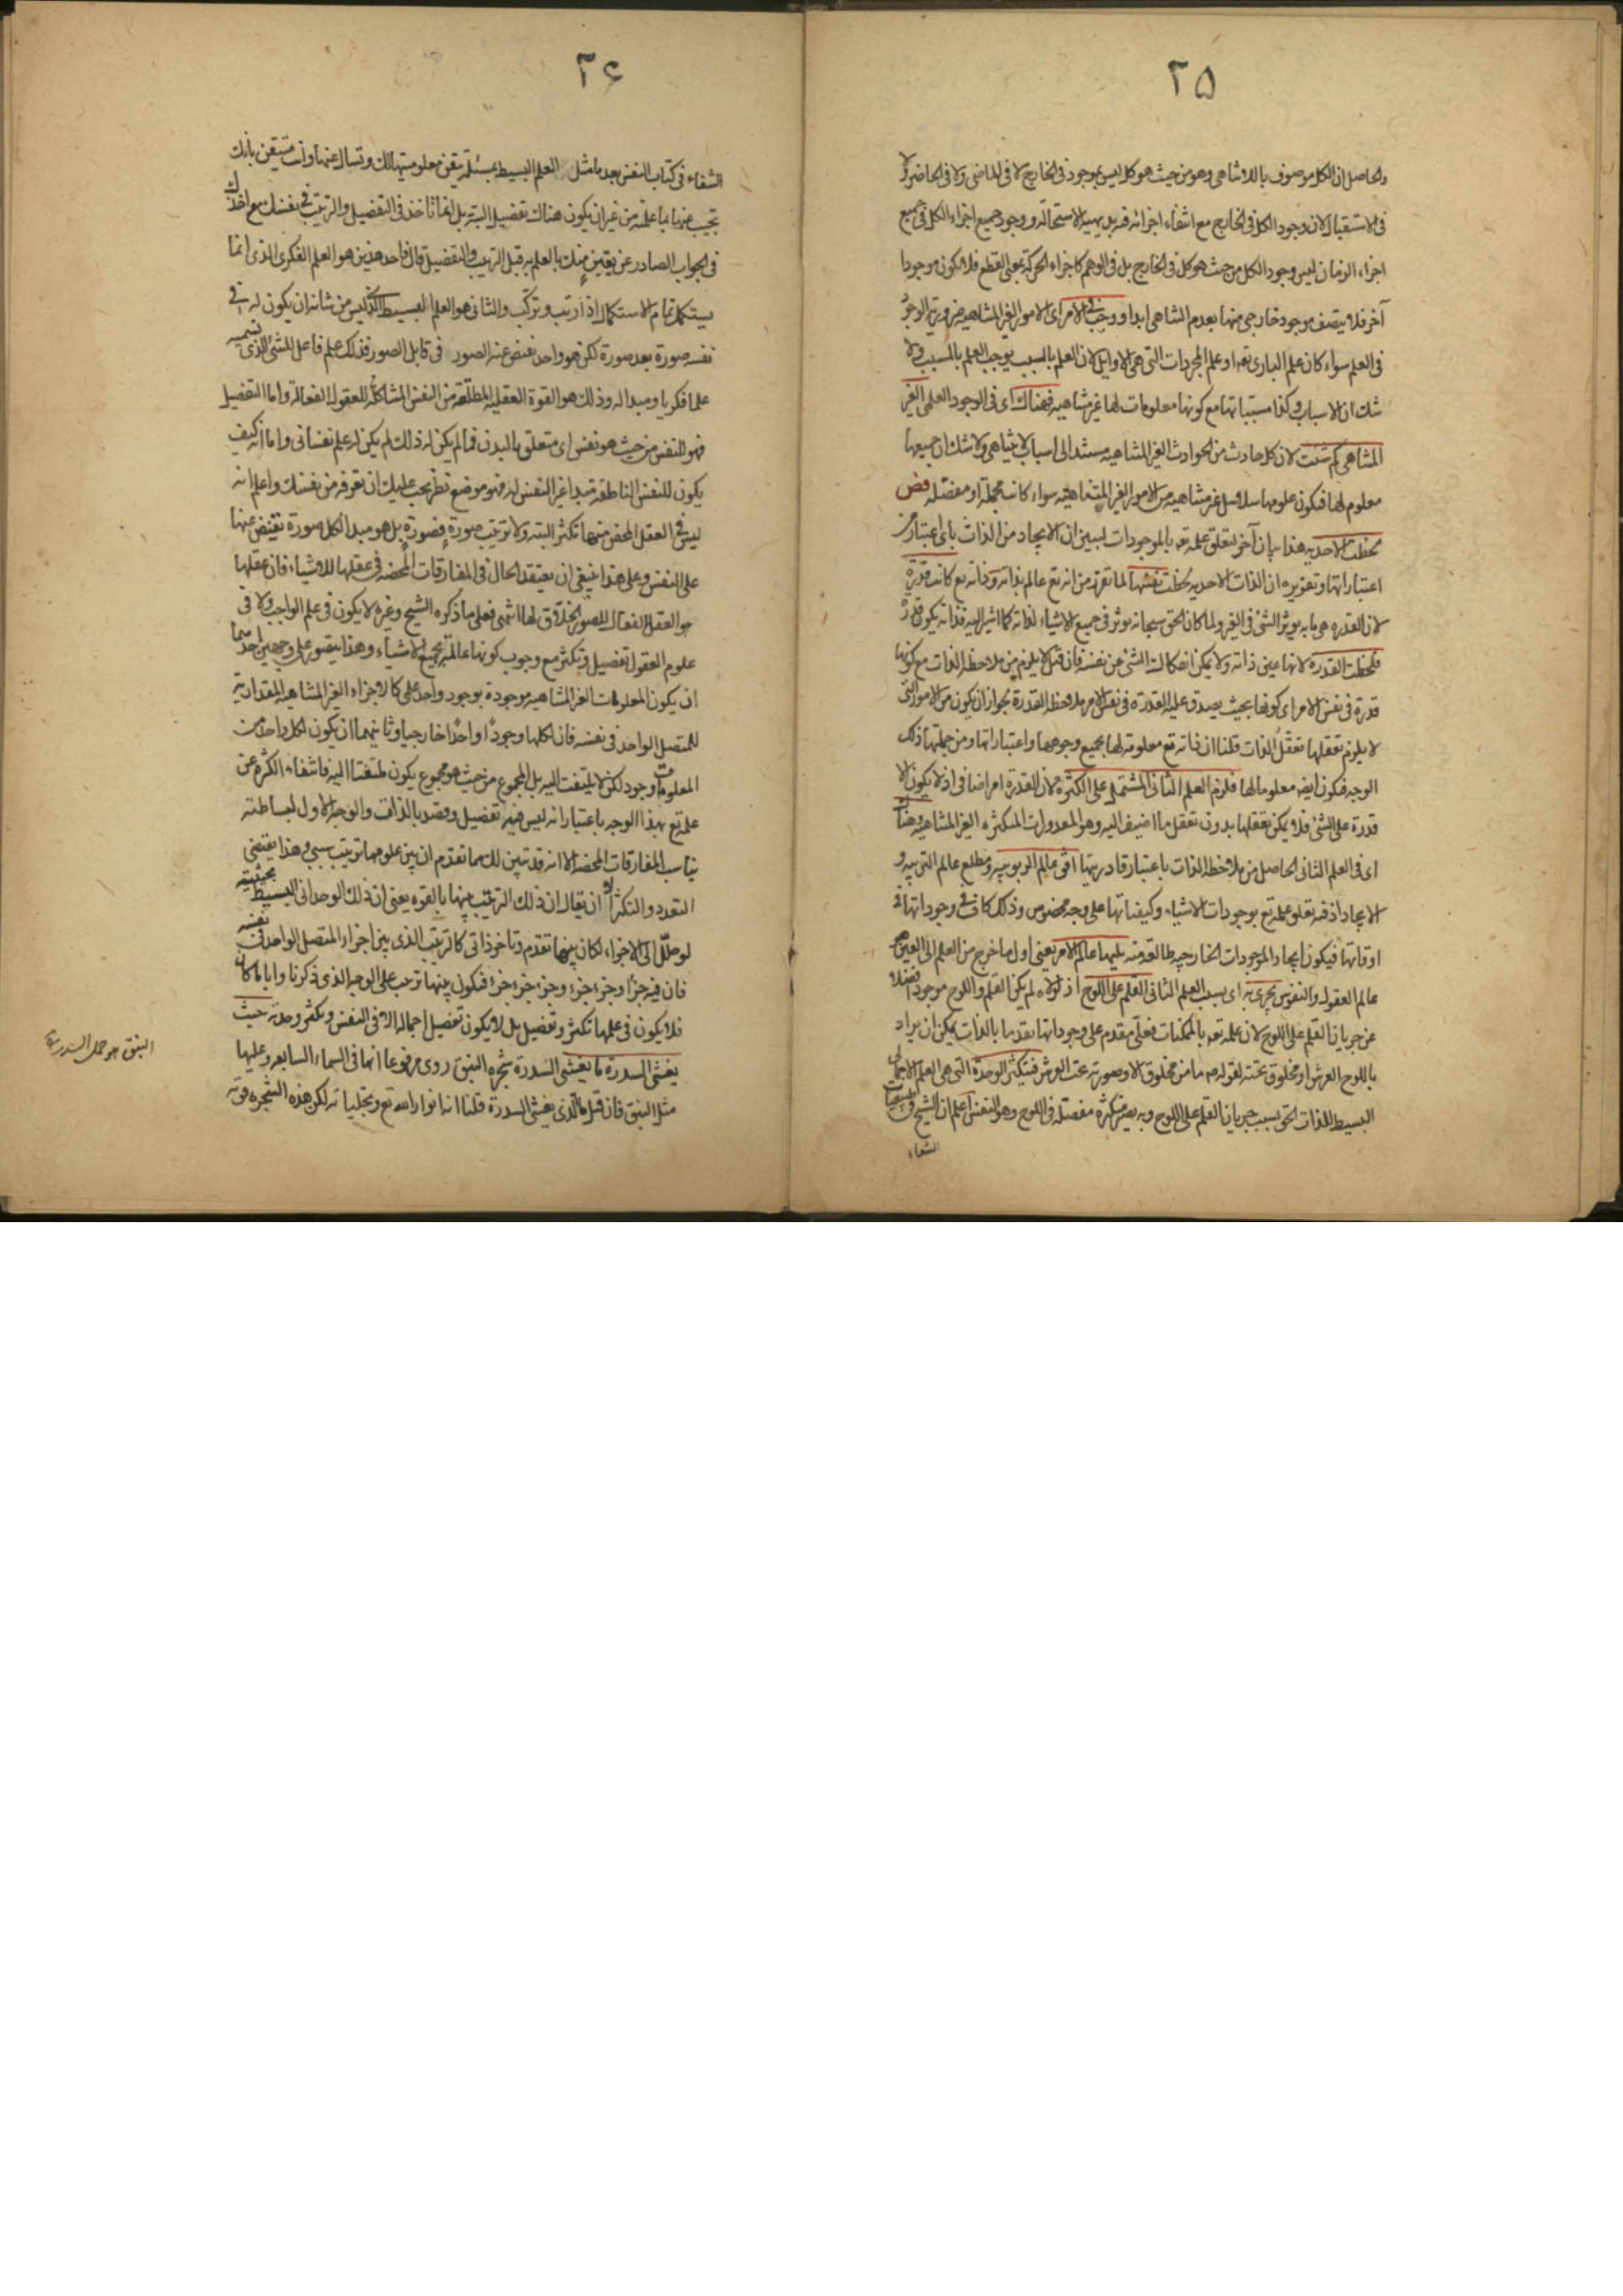 ٢۵
والحاصل ان الكل موصوف باللاتناهى وهو من حيث هو كل ليس بموجود فى الخارج لا فى الماضى ولا فى الحاضر ولا
فى الاستقبال لان وجود الكل فى الخارج مع انتفاء اجزائه قد بل بديهية الاستحالة ووجود جميع اجزاء الكل فى جميع
اجزاء الزمان ليس وجود الكل من حيث هو كل فى الخارج بل فى الوهم كاجزاء الحركة بمعنى القطع فلا يكون موجودا
آخر فلا يتصف موجود خارجى منها بعدم التناهى ابدا ووجب فى الامر اى الامور الغير المتناهية ضرورية الوجود
فى العلم سواء كان علم البارى تعه او علم المجردات التى هى الاوايل لان العلم بالسبب يوجب العلم بالمسبب ولا
شك ان الاسباب وكذا مسبباتها مع كونها معلومات لها غير متناهية فهناك اى فى الوجود العلمى الغير
المتناهى كم شئت لان كل حادث من الحوادث الغير المتناهية مستند الى اسباب لا يتناهى ولا شك ان جميعها
معلوم لها فيكون علومها سلاسل غير متناهية من الامور الغير المتناهية سواء كانت مجملة او مفصلة فص
لحظت الاحدية هذا بيان آخر لتعلق علمه تعه بالموجودات ليبين ان الايجاد من الذات باى اعتبار من
اعتباراتها وتقريره ان الذات الاحدية لحظت نفسها لما تقرر من انه تع عالم بذاته وذاته تع كانت قدرة
لان القدره هى ما به يوثر الشئ فى الغير ولما كان الحق سبحانه يوثر فى جميع الاشياء لذاته كما اشير اليه فذاته يكون قدرة
فلحظت القدرة لانها عين ذاته ولا يمكن انفكاك الشئ عن نفسه فان قيل لا يلزم من ملاحظه الذات مع كونها
قدرة فى نفس الامر اى كونها بحيث يصدق عليه القدره فى نفس الامر ملاحظه القدرة لجواز ان يكون من الامور التى
لا يلزم تعقلها تعقل الذات قلنا ان ذاته تع معلومة لها بجميع وجوهها واعتباراتها ومن جملتها ذلك
الوجه فيكون ايضا معلوما لها فلزم العلم الثانى المشتمل على الكثرة لان القدرة امر اضافى اذ لا يكون الا
قدرة على الشئ فلا يمكن تعقلها بدون تعقل ما اضيف اليه وهو المقدورات المتكثره الغير المتناهية وهناك
اى فى العلم الثانى الحاصل من ملاحظه الذات باعتبار قادريتها افق عالم الربوبيه ومطلع عالم التربيه و
الايجاد اذ فيه تعلق علمه تع بوجودات الاشياء وكيفياتها على وجه مخصوص وذلك كاف فى وجوداتها فى
اوقاتها فيكون ايجاد الموجودات الخارجيه طالعة منه يليها عالم الامر يعنى اول ما خرج من العلم الى العين هو
عالم العقول والنفوس يجرى به اى بسبب العلم الثانى القلم على اللوح اذ لولاه لم يكن القلم واللوح موجودا فضلا
عن جريان القلم على اللوح لان علمه تعه بالممكنات فعلى مقدم على وجوداتها تقدما بالذات يمكن ان يراد
باللوح العرش او مخلوق تحته لقوله م ما من مخلوق الا وصورته تحت العرش فيتكثر الوحدة التى هى العلم الاجمالى
البسيط للذات الحق بسبب جريان القلم على اللوح وبه يصير متكثرة مفصلة فى اللوح وهو النفس اعلم ان الشيخ فى طبيعيات
الشفاء
٢۶
الشفاء فى كتاب النفس بعد ما مثل العلم البسيط بمسئلة تيقن معلوميتها لك وتسال عنها وانت متيقن بانك
تجيب عنها بما علمته من غير ان يكون هناك تفصيل البتة بل انما تاخذ فى التفصيل والترتيب فى نفسك مع اخذك
فى الجواب الصادر عن يقين منك بالعلم به قبل الترتيب والتفصيل قال فاحد هذين هو العلم الفكرى الذى انما
يستكمل تمام الاستكمال اذا ترتب وتركب والثانى هو العلم البسيط الذى ليس من شانه ان يكون له فى
نفسه صورة بعد صورة لكن هو واحد تفيض عنه الصور فى قابل الصور فذلك علم فاعل للشئ الذى نسميه
علما فكريا ومبدا له وذلك هو القوة العقلية المطلقة من النفس المشاكلة للعقول الفعالة واما التفصيل
فهو للنفس من حيث هو نفس اى متعلق بالبدن فما لم يكن له ذلك لم يكن له علم نفسانى واما انه كيف
يكون للنفس الناطقة مبدا غير النفس له فهو موضع نظر يجب عليك ان تعرفه من نفسك واعلم انه
ليس فى العقل المحض منهما تكثر البته ولا ترتيب صورة فصورة بل هو مبدا لكل صورة تفيض عنها
على النفس وعلى هذا ينبغى ان يعتقد الحال فى المفارقات المحضه فى عقلها للاشياء فان عقلها
هو العقل الفعال للصور الخلاق لها انتهى فعلى ما ذكره الشيخ وغيره لا يكون فى علم الواجب ولا فى
علوم العقول تفصيل وتكثر مع وجوب كونها عالمة بجميع الاشياء وهذا يتصور على وجهين احدهما
ان يكون المعلومات الغير المتناهيه موجودة بوجود واحد على كالاجزاء الغير المتناهيه المقدارية
للمتصل الواحد فى نفسه فان لكلها وجودا واحدا خارجيا وثانيهما ان يكون لكل واحد من
المعلومات وجود لكن لا يلتفت اليه بل المجموع من حيث هو مجموع يكون ملتفتا اليه فانتفاء الكثره عن
علمه تع بهذا الوجه باعتبار انه ليس فيه تفصيل وقصد بالذات والوجه الاول لبساطته
يناسب المفارقات المحضه الا انه قد تبين لك مما تقدم ان بين علومها ترتيب سببى وهذا يقتضى
التعدد والتكثر الا ان يقال ان ذلك الترتيب بينها بالقوه يعنى ان ذلك الوحدانى البسيط بحيثية
لو حلل الى الاجزاء لكان بينها تقدم وتاخر ذاتى كالترتيب الذى بين اجزاء المتصل الواحد فى نفسه
فان فيه جزءا وجزء جزء وجزء جزء جزء فيكون بينها ترتيب على الوجه الذى ذكرنا وايا ما كان
فلا يكون فى علمها تكثر وتفصيل بل لا يكون تفصيل اجماله الا فى النفس وتكثر وحدته حيث
يغشى السدرة ما يغشى السدرة شجرة النبق روى مرفوعا انها فى السماء السابعه وعليها
مثل النبق فان قيل ما الذى يغشى السدرة قلنا انه انوار الله تع وتجلياته لكن هذه الشجره قوته
النبق هو حمل السدرة